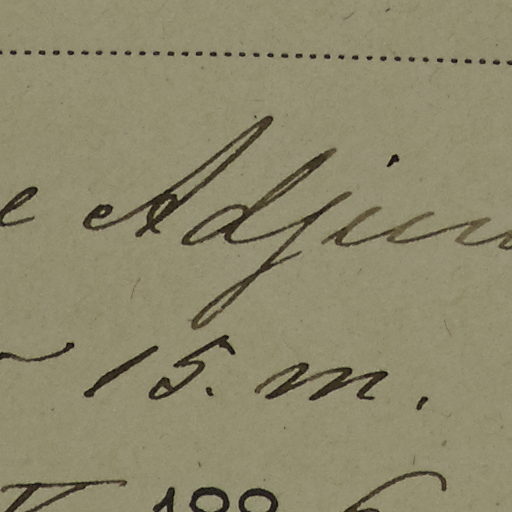 e Adjun
15. m.
188 6